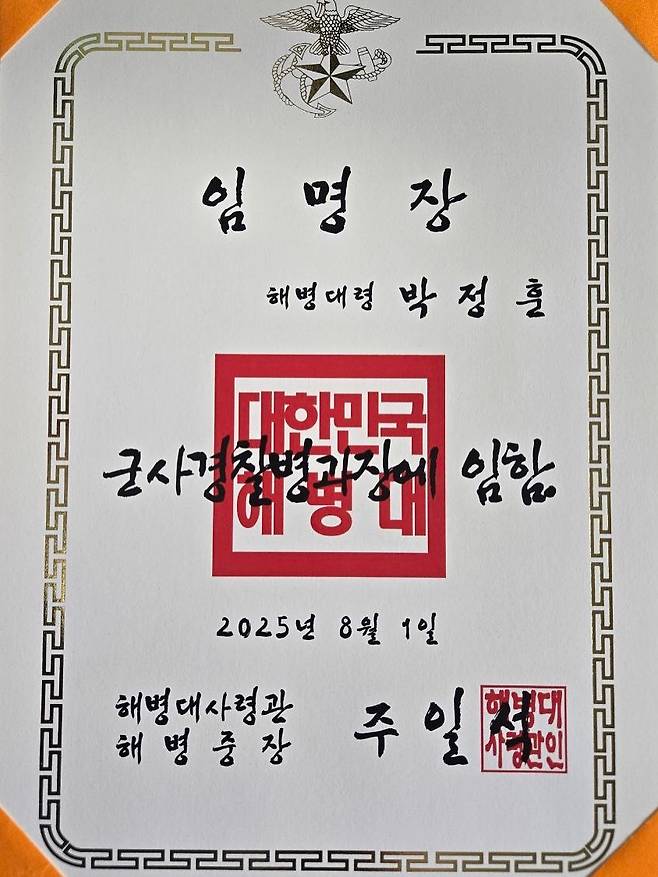 임명장
해병대령 박정훈
대한민국
해병대
군사경찰병과장에 임함.
2025년 8월 1일
해병대사령관
해병중장
주일석
해병대
사령관인